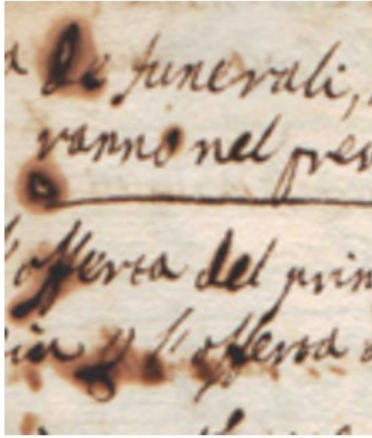 de funerali,
ranno nel pres
l'offerta del prin
l'offerta